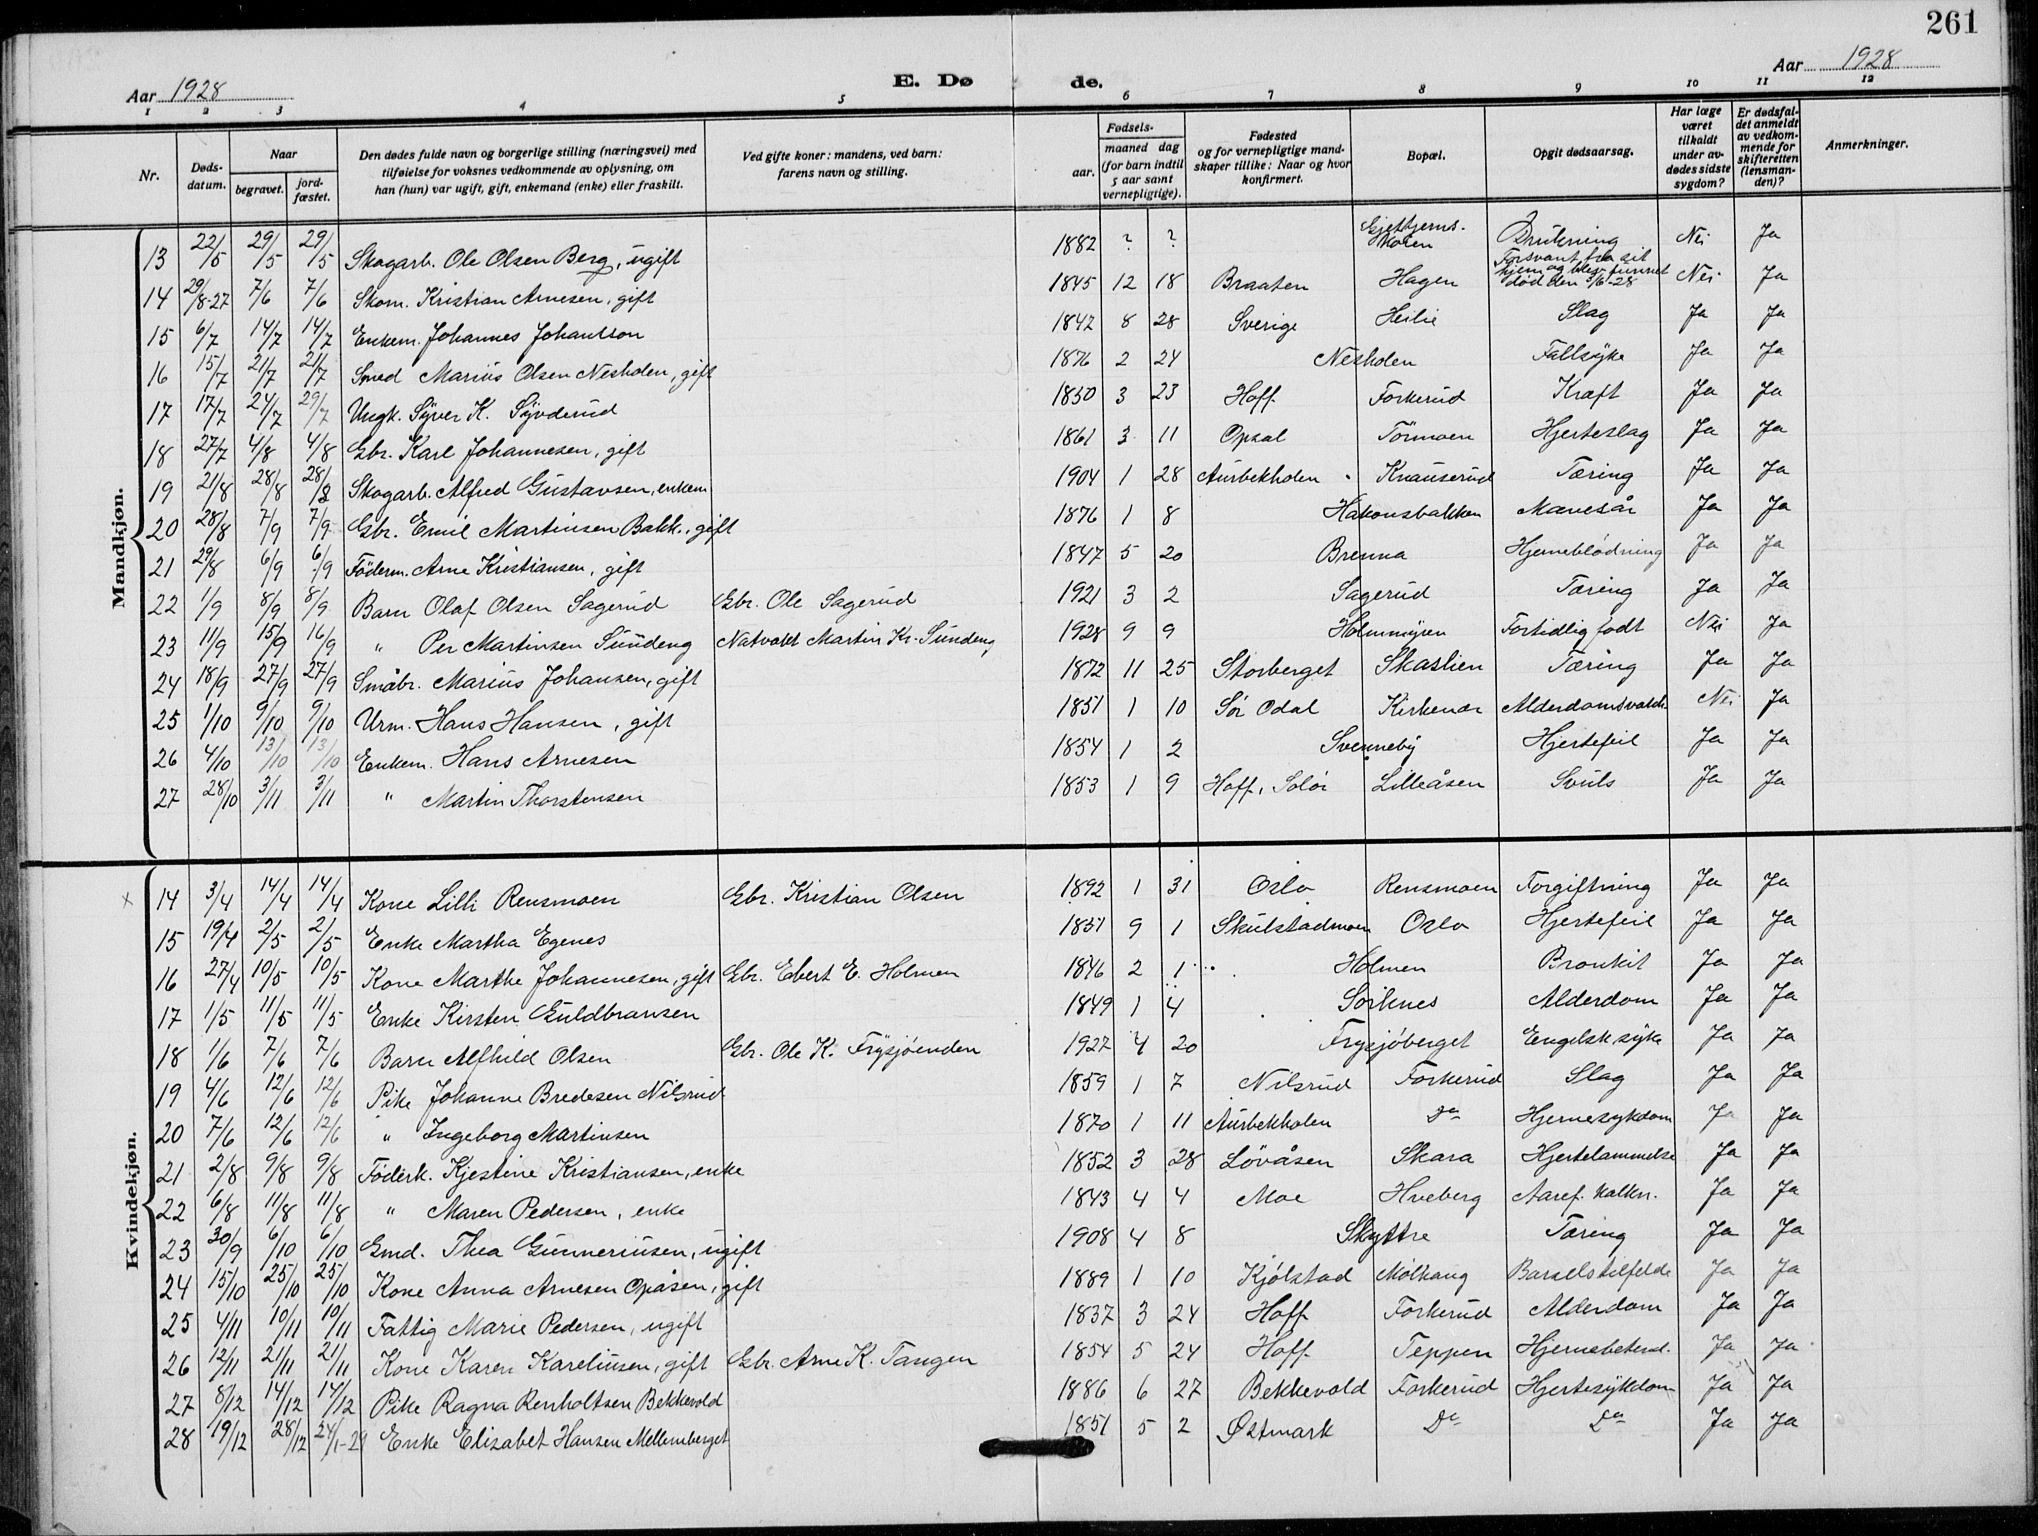 261
Aar 1928
E. Dø de.
Aar 1928
1 2 3 4 5 6 7 8 9 10 11 12
Nr.
Døds-
datum.
Naar
begravet.
jord-
fæstet.
Den dødes fulde navn og borgerlige stilling (næringsvei) med
tilføielse for voksnes vedkommende av oplysning, om
han (hun) var ugift, gift, enkemand (enke) eller fraskilt.
Ved gifte koner: mandens, ved barn:
farens navn og stilling.
Fødsels-
aar.
maaned dag
(for barn indtil
5 aar samt
vernepligtige).
Fødested
og for vernepligtige mand-
skaper tillike: Naar og hvor
konfirmert.
Bopæl.
Opgit dødsaarsag.
Har læge
været
tilkaldt
under av-
dødes sidste
sygdom?
Er dødsfal-
det anmeldt
av vedkom-
mende for
skifteretten
(lensman-
den)?
Anmerkninger.
Mandkjøn.
13 22/5 29/5 29/5 Skogarb. Ole Olsen Berg, ugift 1882 ? ? Drukning Nei Ja
14 29/8-27 7/6 7/6 Skom. Kristian Arnesen, gift 1845 12 18 Braaten Hagen Forsvant fra sit hjem og blev funnet død den 5/6-28 Nei Ja
15 6/7 14/7 14/7 Enkem. Johannes Johansson 1842 8 28 Sverige Heilie Slag Ja Ja
16 15/7 21/7 21/7 Smed Marius Olsen Nesholen, gift 1876 2 24 Nesholen Fallsyke Ja Ja
17 17/7 24/7 29/7 Ungk. Syver K. Syvderud 1850 3 23 Hoff Forkerud Kræft Ja Ja
18 27/7 4/8 4/8 Gbr. Karl Johannesen, gift 1861 3 11 Opsal Törmoen Hjerteslag Ja Ja
19 21/8 28/8 28/8 Skogarb. Alfred Gustavsen, enkem 1904 1 28 Aurbekholen Knauserud Tæring Ja Ja
20 28/8 7/9 7/9 Gbr. Emil Martinsen Bakk., gift 1876 1 8 Håkonsbakken Mavesår Ja Ja
21 29/8 6/9 6/9 Föderm. Arne Kristiansen, gift 1847 5 20 Brenna Hjerneblödning Ja Ja
22 1/9 8/9 8/9 Barn Olaf Olsen Sagerud Gbr. Ole Sagerud 1921 3 2 Sagerud Tæring Ja Ja
23 11/9 15/9 16/9 " Per Martinsen Sundeng Natvakt Martin Kr. Sundeng 1928 9 9 Holmmyren Fortidlig født Nei Ja
24 18/9 27/9 27/9 Småbr. Marius Johansen, gift 1872 11 25 Storberget Skaslien Tæring Ja Ja
25 1/10 9/10 9/10 Urm. Hans Hansen, gift 1851 1 10 Sör Odal Kirkenær Alderdomsvakh. Nei Ja
26 4/10 13/10 13/10 Enkem. Hans Arnesen 1854 1 2 Svenneby Hjertefeil Ja Ja
27 28/10 3/11 3/11 " Martin Thorstensen 1853 1 9 Hoff, Solör Lilleåsen Svuls Ja Ja
Kvindekjøn.
x 14 3/4 14/4 14/4 Kone Lilli Rensmoen Gbr. Kristian Olsen 1892 1 31 Oslo Rensmoen Forgiftning Ja Ja
15 19/4 2/5 2/5 Enke Martha Egenes 1851 9 1 Skulstadmoen Oslo Hjertefeil Ja Ja
16 27/4 10/5 10/5 Kone Marthe Johannesen, gift Gbr. Ebert E. Holmen 1846 2 1 Holmen Bronkit Ja Ja
17 1/5 11/5 11/5 Enke Kirsten Guldbransen 1849 1 4 Sorknes Alderdom Ja Ja
18 1/6 7/6 7/6 Barn Alfhild Olsen Gbr. Ole K. Frysjöenden 1927 4 20 Frysjöberget Engelsk syke Ja Ja
19 4/6 12/6 12/6 Pike Johanne Bredesen Nilsrud 1859 1 7 Nilsrud Forkerud Slag Ja Ja
20 7/6 12/6 12/6 " Ingeborg Martinsen 1870 1 11 Aurbekholen Do Hjernesykdom Ja Ja
21 2/8 9/8 9/8 Föderk. Kjestine Kristiansen, enke 1852 3 28 Lövåsen Skara Hjertelammelse Ja Ja
22 6/8 11/8 11/8 " Maren Pedersen, enke 1843 4 4 Moe Hveberg Aaref. kalkn. Ja Ja
23 30/9 6/10 6/10 Gmd. Thea Gunneriusen, ugift 1908 4 8 Skyttre Tæring Ja Ja
24 15/10 25/10 25/10 Kone Anna Arnesen Opåsen, gift 1889 1 10 Kjölstad Mölhaug Barselstilfelde Ja Ja
25 4/11 10/11 10/11 Fattig Marie Pedersen, ugift 1837 3 24 Hoff Forkerud Alderdom Ja Ja
26 12/11 21/11 21/11 Kone Karen Kareliusen, gift Gbr. Arne K. Tangen 1854 5 24 Hoff Teppen Hjernebetend. Ja Ja
27 8/12 14/12 14/12 Pike Ragna Renholtsen Bekkevold 1886 6 27 Bekkevold Forkerud Hjertesykdom Ja Ja
28 19/12 28/12 24/1-29 Enke Elizabet Hansen Mellemberget 1851 5 2 Østmark Do Do Ja Ja